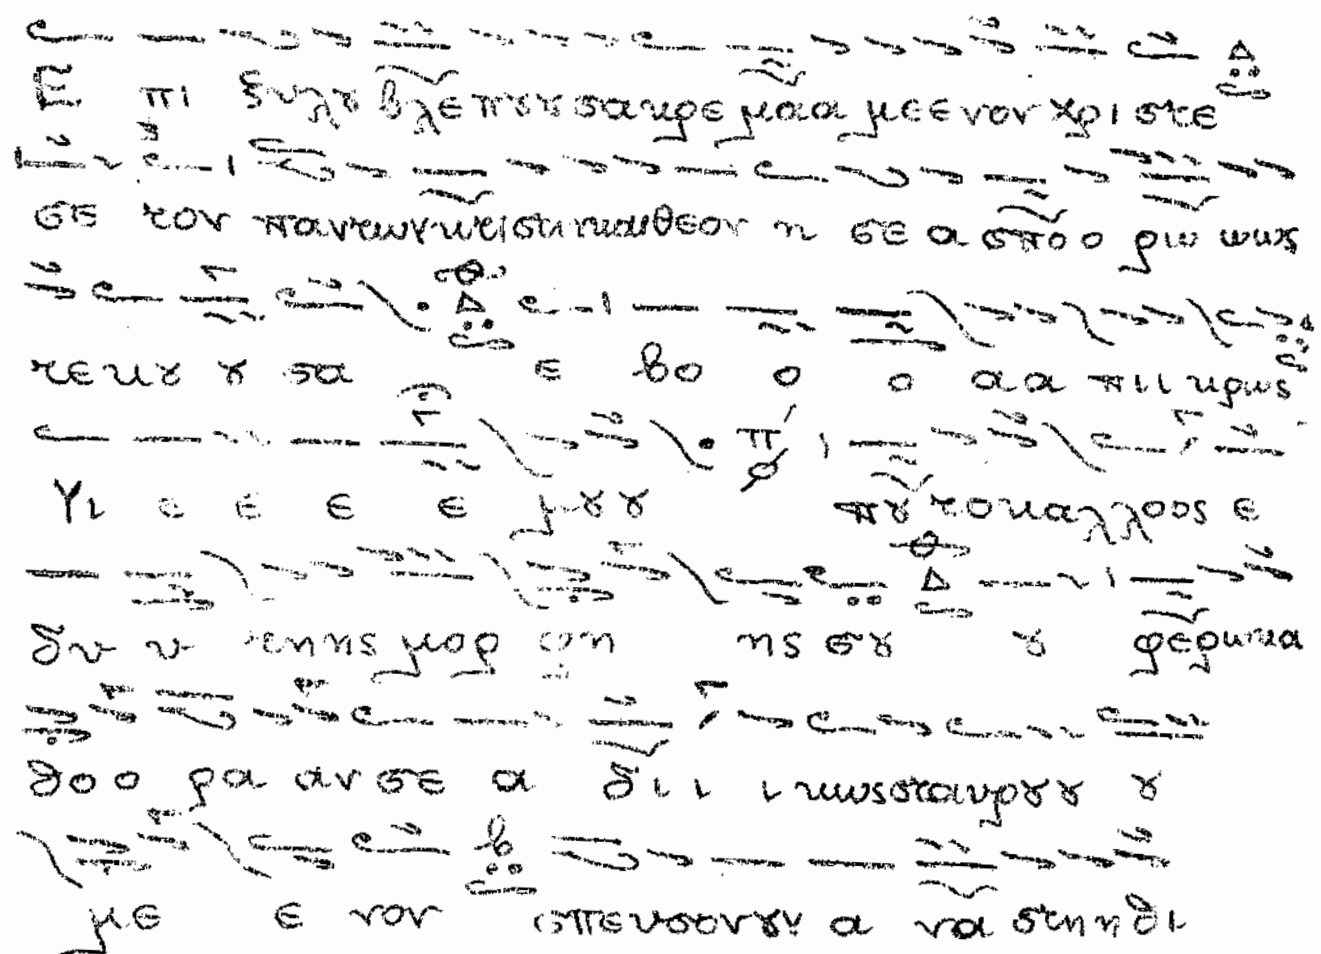 Ε πι ξυλȣ βλεπȣȣσακρε μαα μεενον χρι στε
σε τον παντωνκτειστηνκαιθεον η σε α σπο ο ρω ωως
τεκȣ ȣ σα ε βο ο ο αα πιι κρως
Υι ε ε ε ε μȣȣ πȣ τοκαλλοος ε
δυ υ τηης μορ φη ης σȣ ȣ φερωκα
θο ο ρα αν σε α δι ι ι κωςσταυρȣȣ ȣ
με ε νον σπευσονȣν α να στηηθι